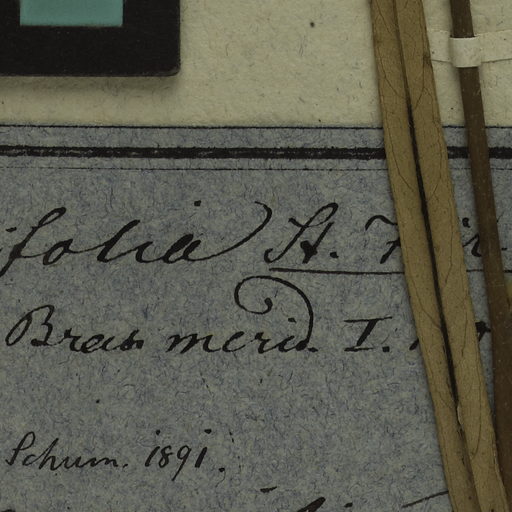 ifolia St.
Bras. merid. I.
Schum. 1891.